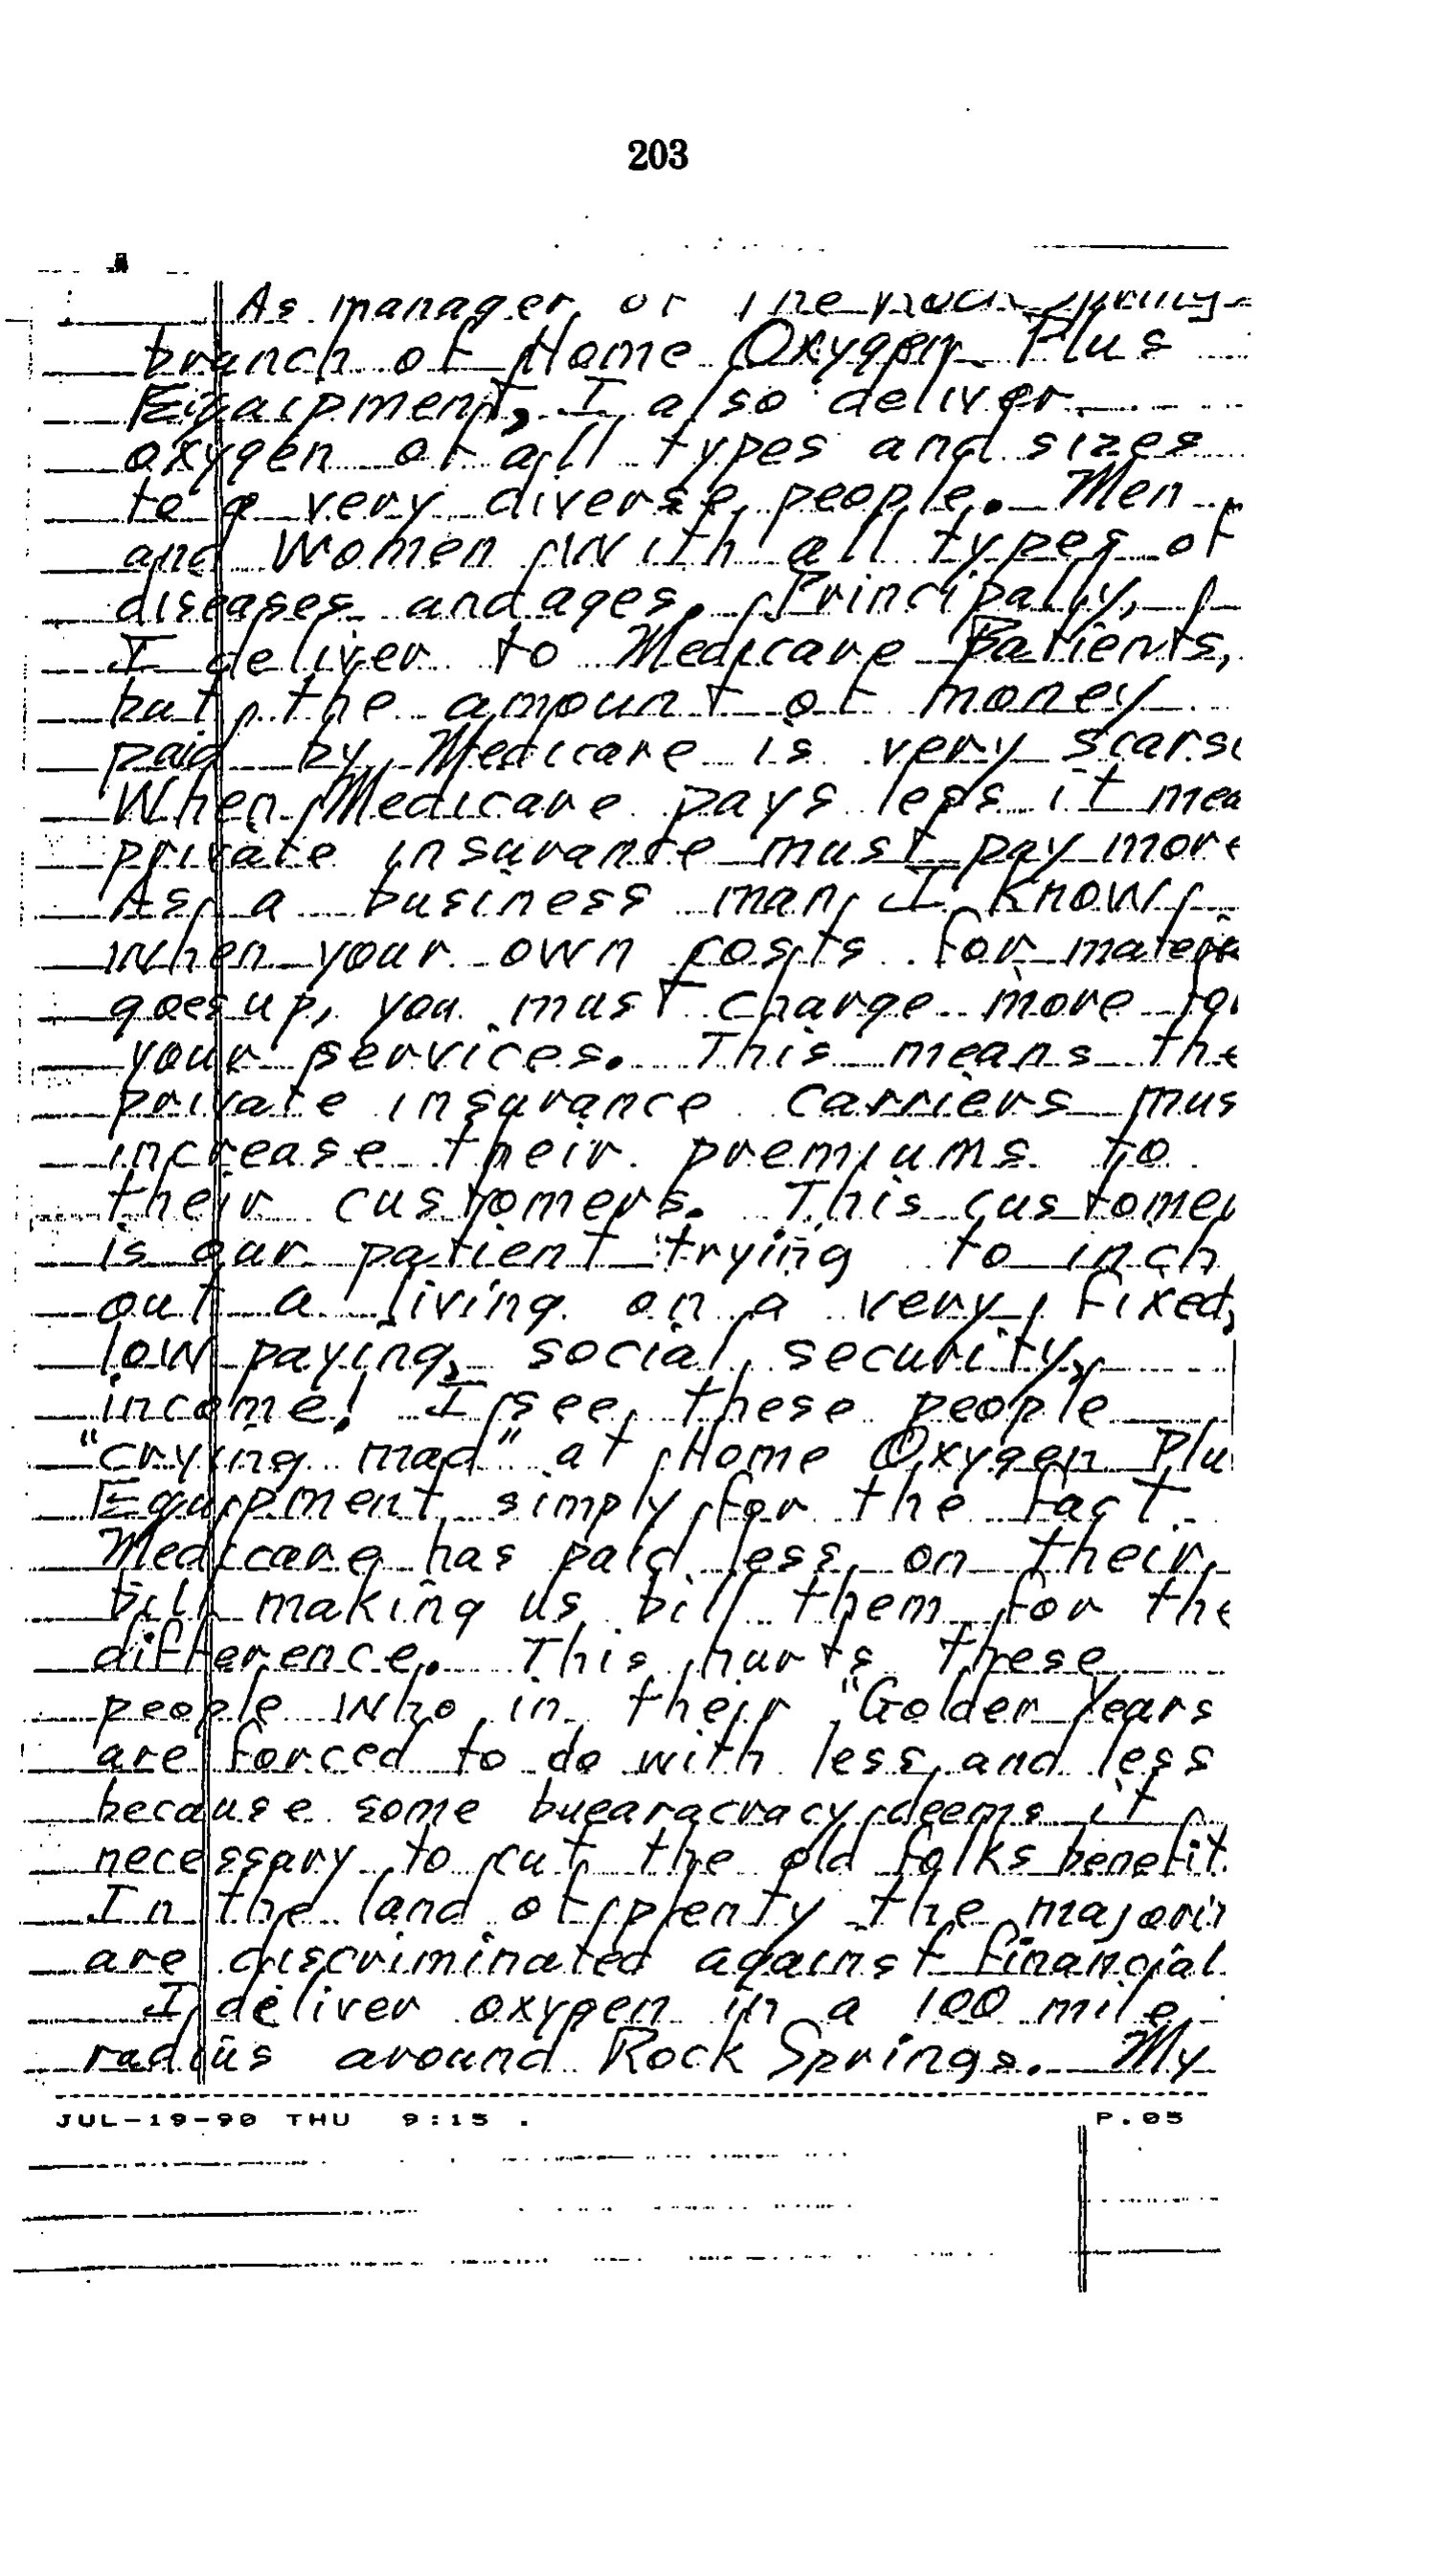 203
As manager of The Rock Springs
branch of Home Oxygen Plus
Equipment, I also deliver
oxygen of all types and sizes
to a very diverse people. Men
and Women With all types of
diseases and ages. Principally,
I deliver to Medicare Patients,
but the amount of money
paid by Medicare is very scars
When Medicare pays less it mea
private insurance must pay more
As a business man, I Know
when your own costs for
goes up, you must charge more for
your services. This means the
private insurance carriers mus
increase their premiums to
their customers. This customer
is our patient trying to inch
out a living on a very fixed,
low paying, social security,
income! I see these people
"crying mad" at Home Oxygen Plu
Equipment simply for the fact
Medicare has paid less on their
bill making us bill them for the
difference. This hurts these
people who in their "Golden Years
are forced to do with less and less
because some buearacracy deems it
necessary to cut the old folks benefit
In the land of plenty the majori
are discriminated against financial
I deliver oxygen in a 100 mile
radius around Rock Springs. My
JUL-19-90 THU 9:15 . P.05